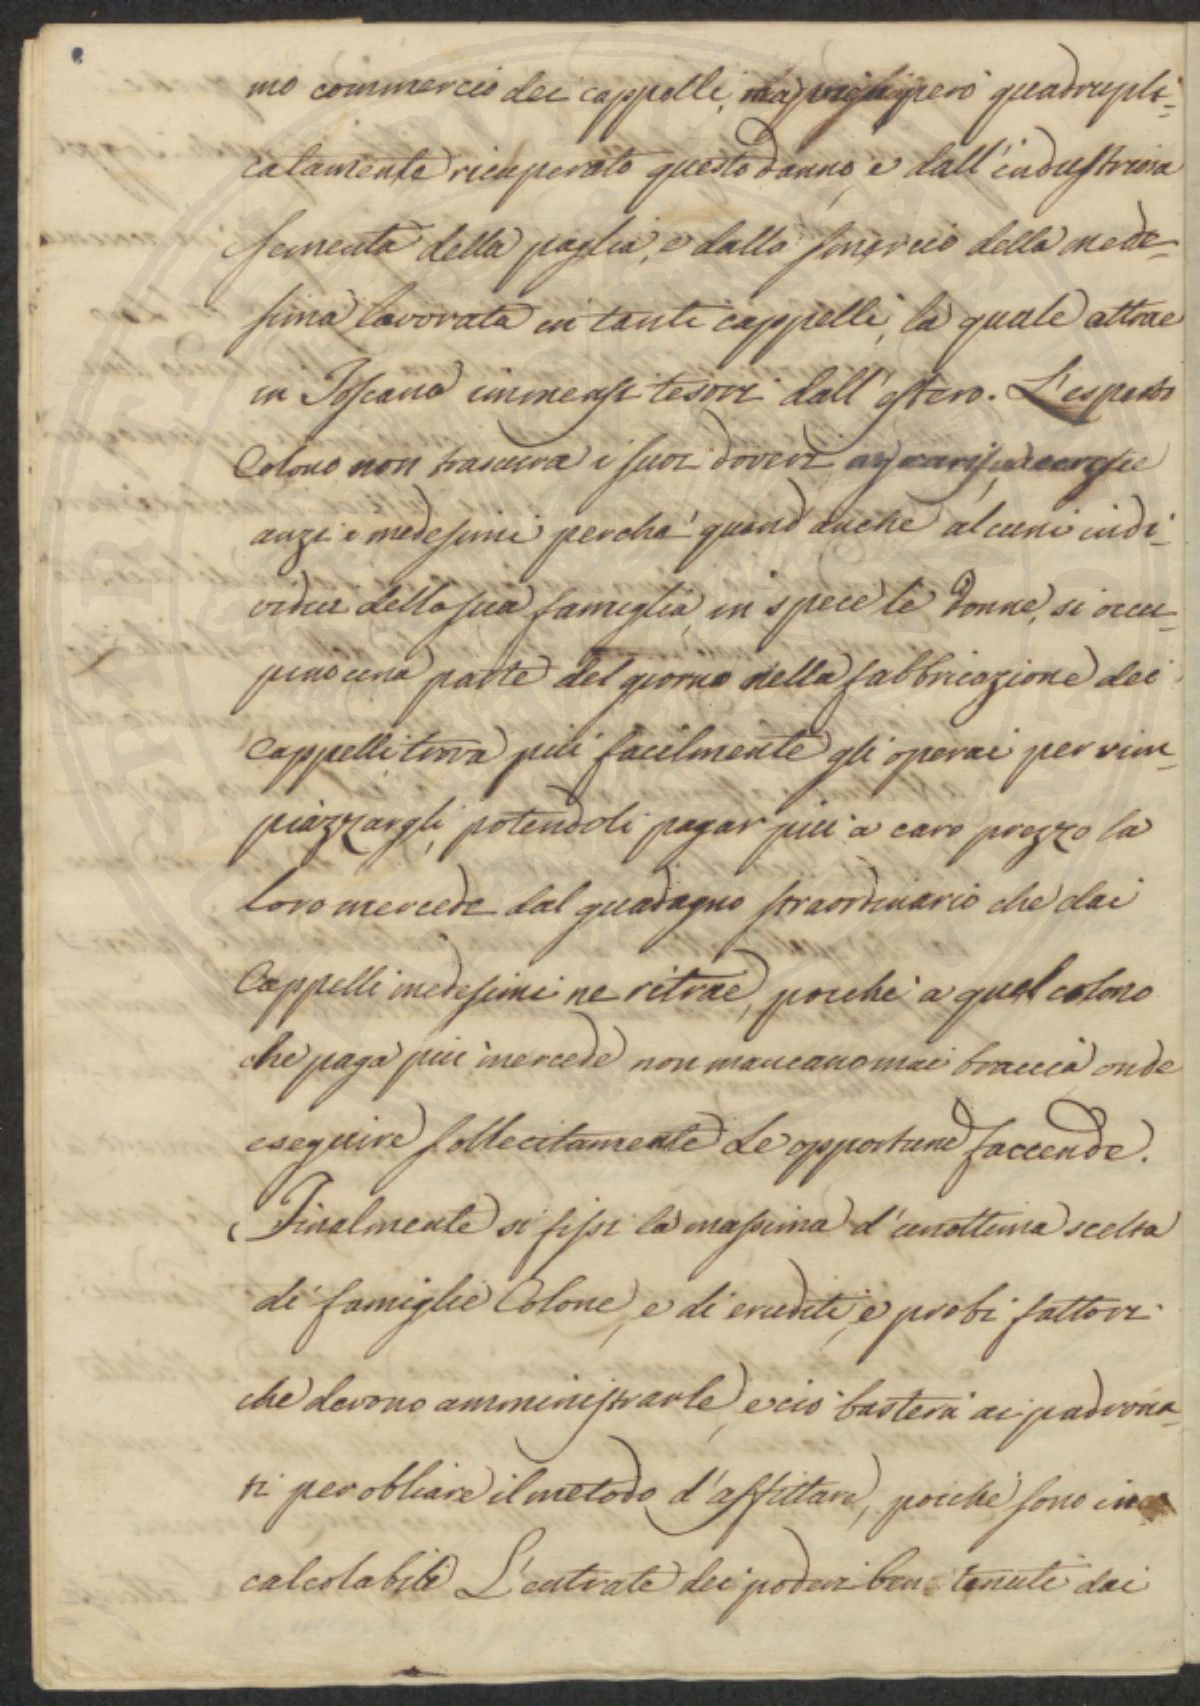 mo commercio dei cappelli, ma però quadrupli-
catamente ricuperato questo danno, e dall'industriosa
sementa della paglia, e dallo smercio della mede-
sima lavorata in tanti cappelli, la quale attrae
in Toscana immensi tesori dall'estero. L'esperto
Colono non trascura i suoi doveri
anzi i medesimi perchè quand'anche alcuni indi-
vidui della sua famiglia, in specie le Donne, si occu-
pino una parte del giorno nella fabbricazione dei
Cappelli trova più facilmente gli operai per rim-
piazzargli, potendoli pagar più a caro prezzo la
loro mercede dal guadagno straordinario che dai
Cappelli medesimi ne ritrae, poichè a quel colono
che paga più mercede non mancano mai braccia onde
eseguire sollecitamente Le opportune faccende.
Finalmente si fissi la massima d'un ottima scelta
di famiglie Colone, e di eruditi, e probi fattori
che devono amministrarle, e ciò basterà ai padrona-
ti per obliare il metodo d'affittare, poichè sono in
calcolabili L'entrate dei poderi ben tenuti dai